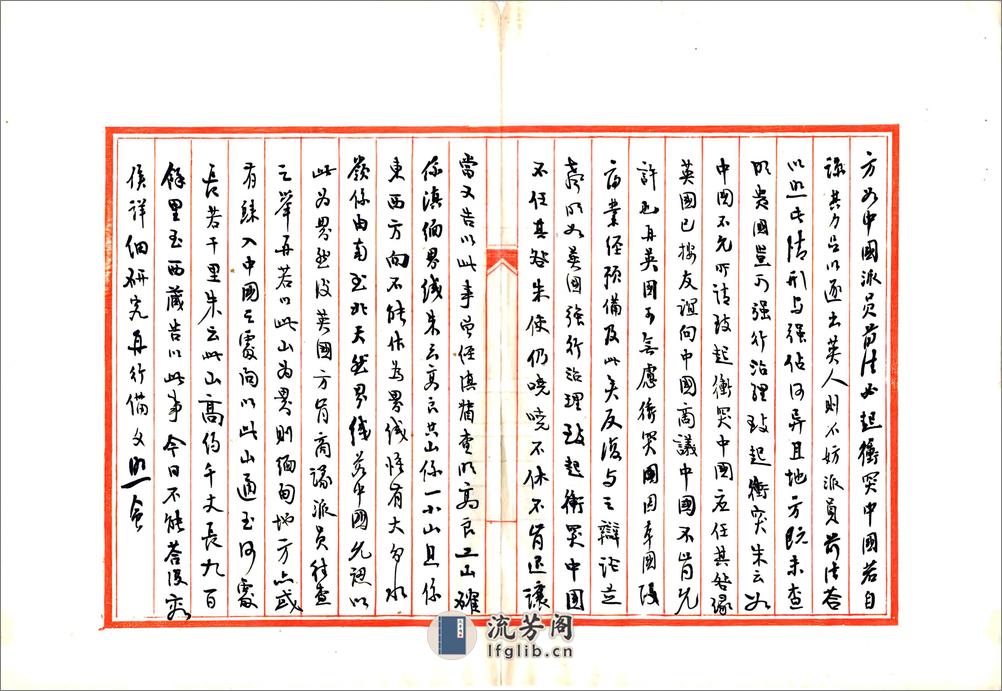 方如中國派員前往必起衝突中國若自
諒其力足以逐去英人則不妨派員前往答
以照此情形与强佔何异且地方既未查
明貴國豈可强行治理致起衝突朱云如
中國不允所請致起衝突中國应任其咎缘
英國已按友誼向中國商議中國不肯允
許也且英國可無慮衝突國因本國
業经預備及此矣反復与之辯論並
声明如英國强行治理致起衝突中國
不任其咎朱使仍哓哓不休不肯退讓
當又告以此事曾经滇督查明高良工山確
係滇緬界线朱云高良共山係一小山且係
東西方向不能作為界线惟有大分水
嶺係由南至北天然界线若中國允認以
此為界然後英國方肯商議派員往查
之举再若以此山為界則緬甸地方亦或
有缘入中國之處询以此山通至何處
長若干里朱云此山高约千丈長九百
餘里至西藏告以此事今日不能荅復容
俟详细研究再行備文照會
流芳阁
lfglib.cn